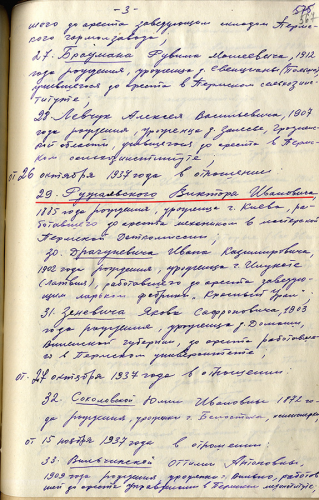 - 3 -
шего до ареста заведующим складом Перм-
ского гормолзавода;
27. Браумана Рувима Моисеевича, 1912
года рождения, уроженца г. (Польша)
учившегося до ареста в Пермском сельхозин-
ституте;
28. Левчук Алексея Васильевича, 1907
года рождения, уроженца д. Гроднен-
ской области, учившегося до ареста в Перм-
ском сельхозинституте;
от 26 октября 1937 года в отношении:
29. Ружалвского Виктора Ивановича
1885 года рождения, уроженца г. Киева, ра-
ботавшего до ареста механиком в мастерской
Пермской Детколонии;
30. Драгуневича Ивана Казимировича,
1902 года рождения, уроженца г.
(Латвия), работавшего до ареста заведую-
щим ларьком фабрики "Красный Урал";
31. Зеневича Якова Сафроновича, 1903
года рождения, уроженца д. Домани,
Виленской губернии, до ареста работавше-
го в Пермском университете;
от 27 октября 1937 года в отношении:
32. Соколовской Юлии Ивановны 1872 го-
да рождения, уроженки г. Белостока,
от 15 ноября 1937 года в отношении:
33. Антоновны,
1909 года рождения, уроженки г. Вильно, работав-
шей до ареста